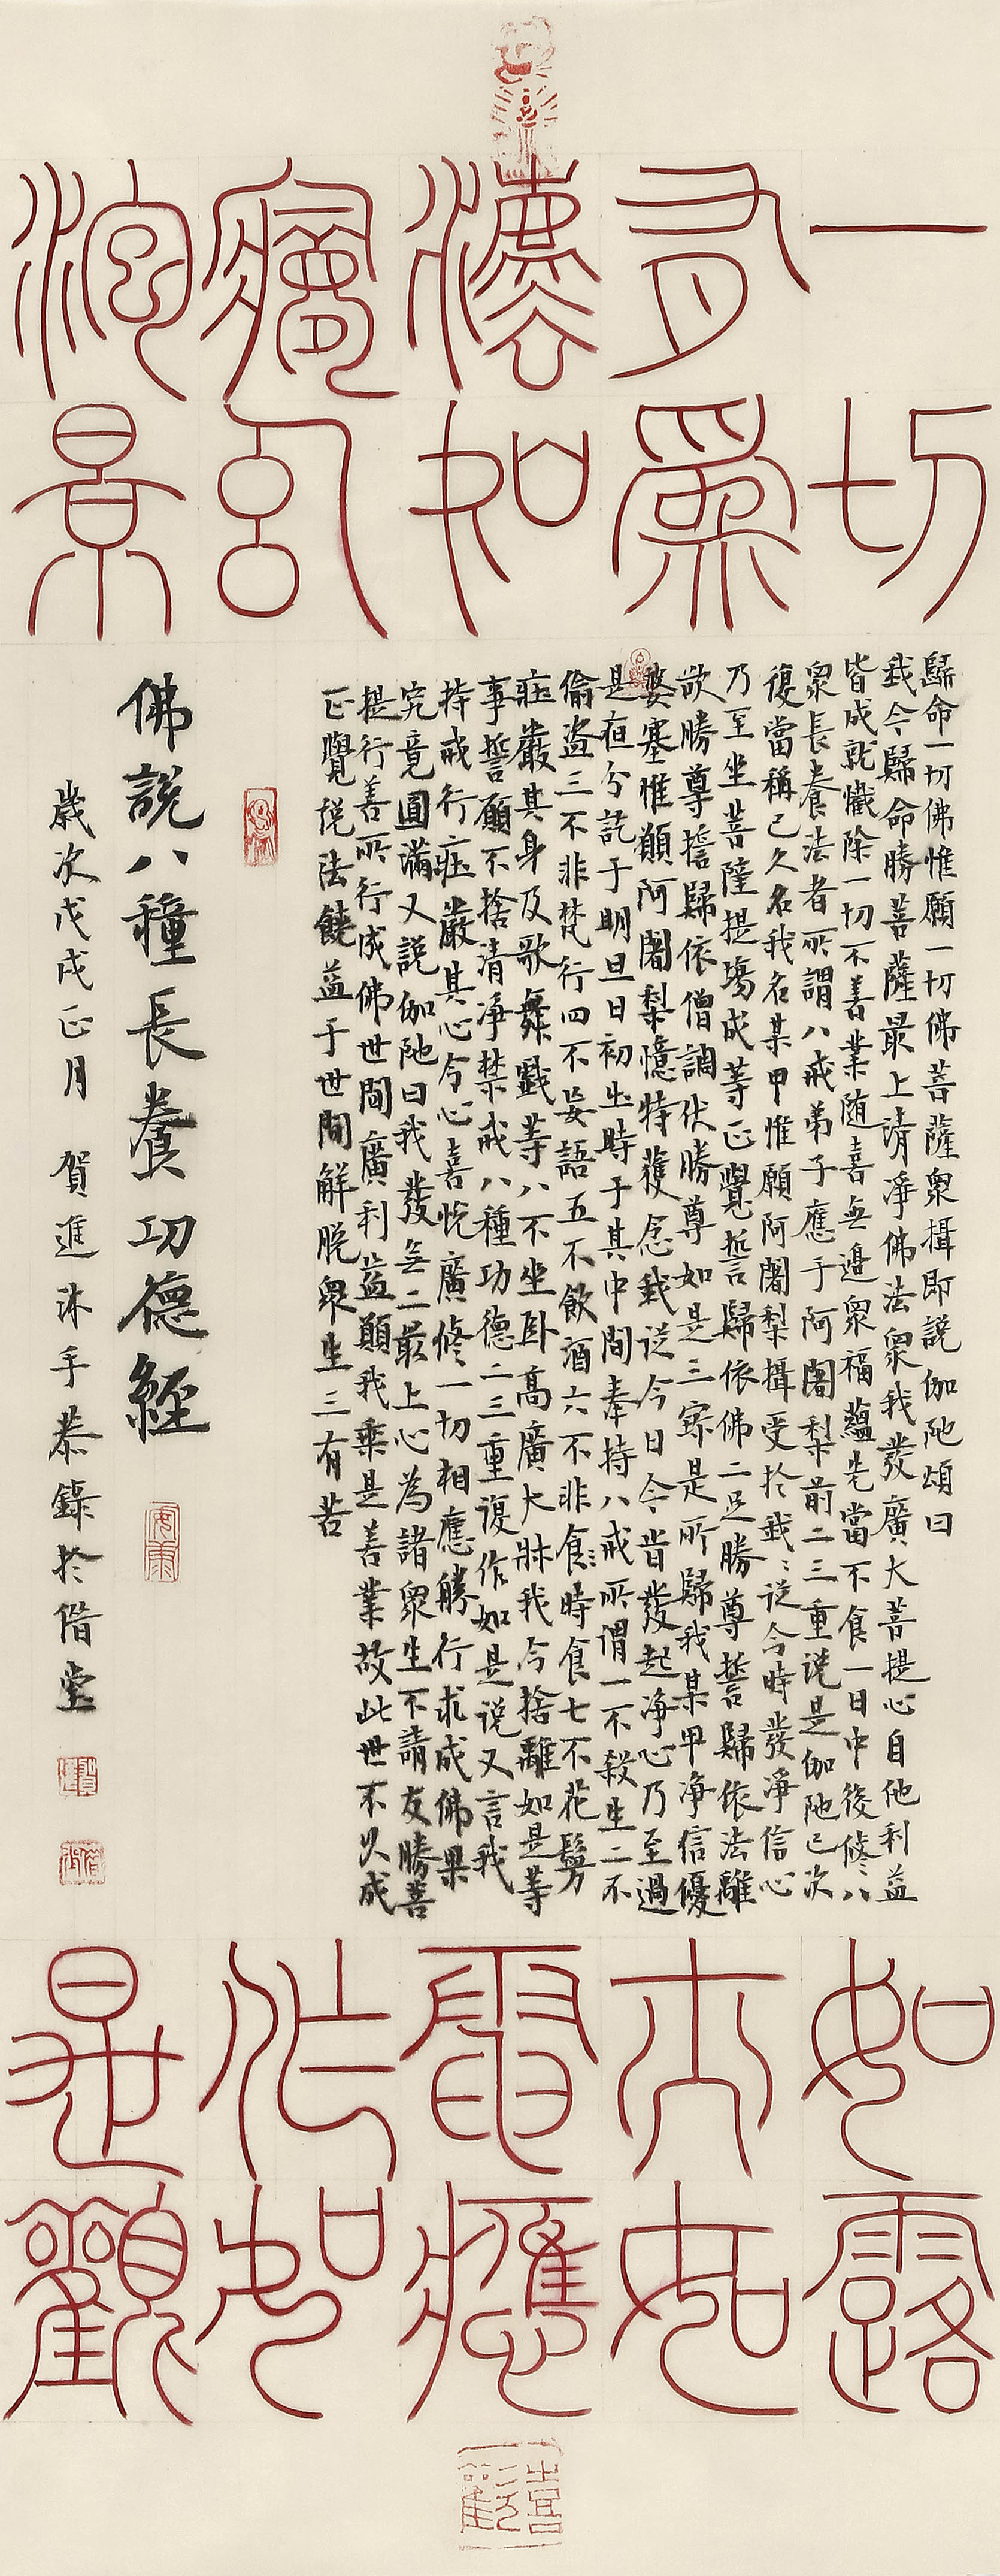 一切
有為
灋如
夢幻
泡景
歸命一切佛惟願一切佛菩薩眾攝即說伽陁頌曰
我今歸命勝菩薩最上清淨佛法眾我發廣大菩提心自他利益
皆成就懺除一切不善業随喜無邊眾福蘊先當不食一日中後修八
眾長養法者所謂八戒弟子應于阿闍梨前二三重說是伽陁已次
復當稱已久名我名某甲惟願阿闍梨攝受於我〻從今時發淨信心
乃至坐菩薩提場成等正覺誓歸依佛二足勝尊誓歸依法離
欲勝尊誓歸依僧調伏勝尊如是三寶是所歸我某甲淨信優
婆塞惟願阿闍梨憶持護念我從今日今時發起淨心乃至過
是夜分訖于明旦日初出時于其中間奉持八戒所謂一不殺生二不
偷盜三不非梵行四不妄語五不飲酒六不非食〻時食七不花鬘
莊嚴其身及歌舞戲等八不坐卧高廣大牀我今捨離如是等
事誓願不捨清淨禁戒八種功德二三重復作如是說又言我
持戒行莊嚴其心令心喜悅廣修一切相應勝行求成佛果
究竟圓滿又說伽陁曰我發無二最上心為諸眾生不請友勝菩
提行善所行成佛世間廣利益願我乘是善業故此世不久成
正覺說法饒益于世間解脫眾生三有苦
佛說八種長養功德經
歲次戊戌正月 賀進沐手恭錄於偕堂
如露
亦如
電應
作如
是觀